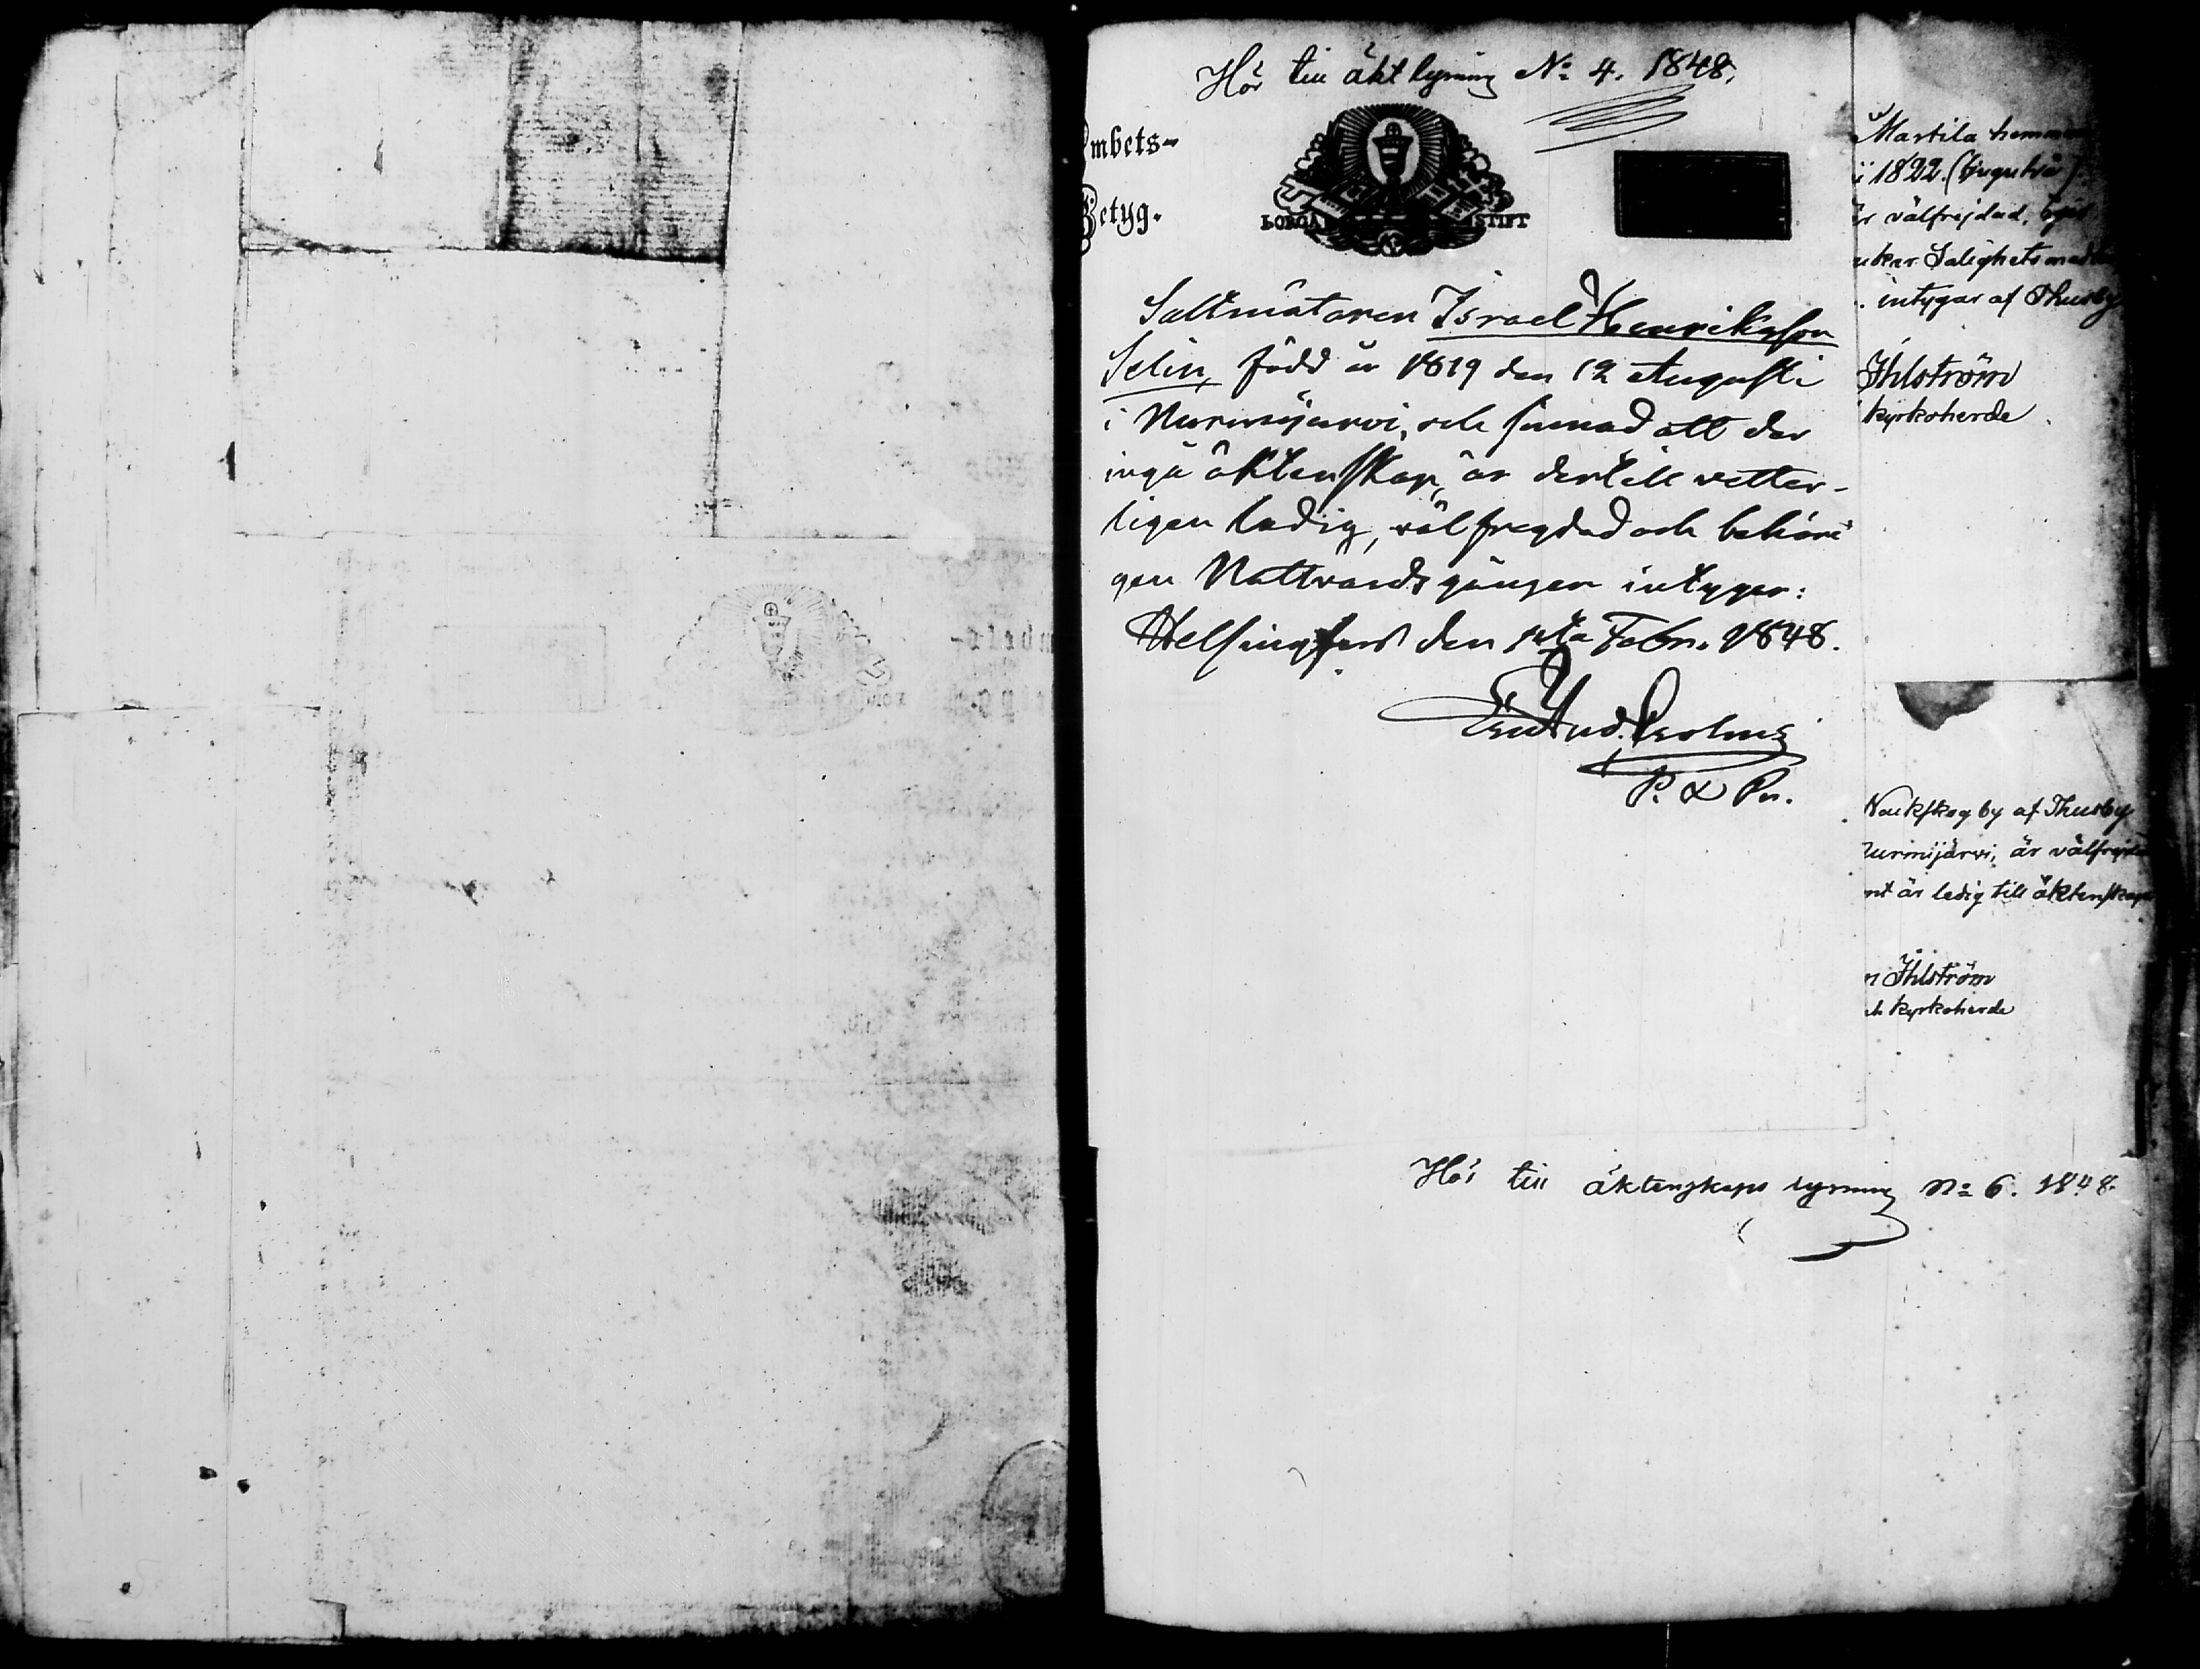 Hör till äkt lysning No 4. 1848.
mbets-
Betyg.
BORGÅ STIFT
Saltmätaren Israel Henriksson
Selin, född år 1819 den 12 Augusti
i Nurmijärvi, och sinnad att der
ingå äktenskap, är dertill vetter-
ligen ledig, välfregdad och behöri
gen Nattvardsgången intygar:
Helsingfors den 1sta Febr. 1848.
P. & Pn.
Martila hemman
i 1822.
är välfrejdad,
Salighetsmedlen
. intygar af Thusby
Ihlström
kyrkoherde
Nackskog by af Thusby
Nurmijärvi, är välfrejdad
nt är ledig till äktenskap
n Ihlström
ch kyrkoherde
Hör till äktenskaps lysning No 6. 1848.